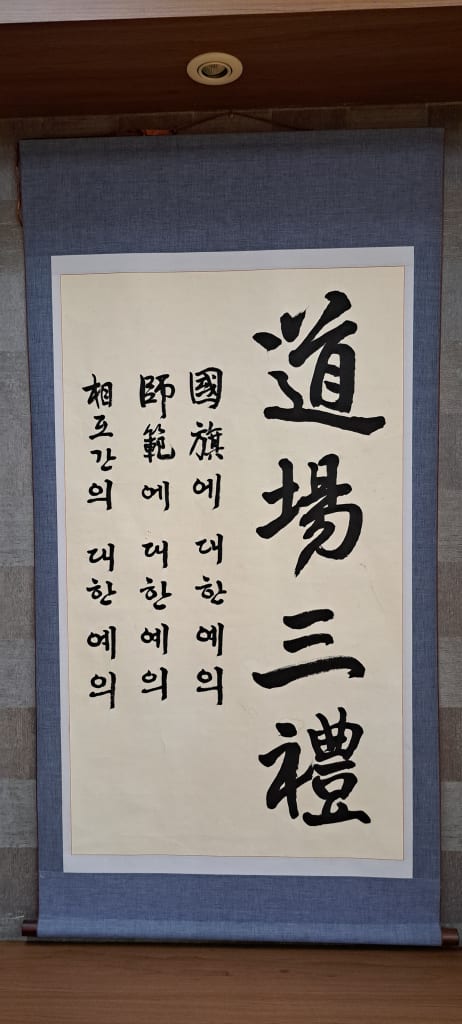 道場三禮
國旗에 대한 예의
師範에 대한 예의
相互간의 대한 예의